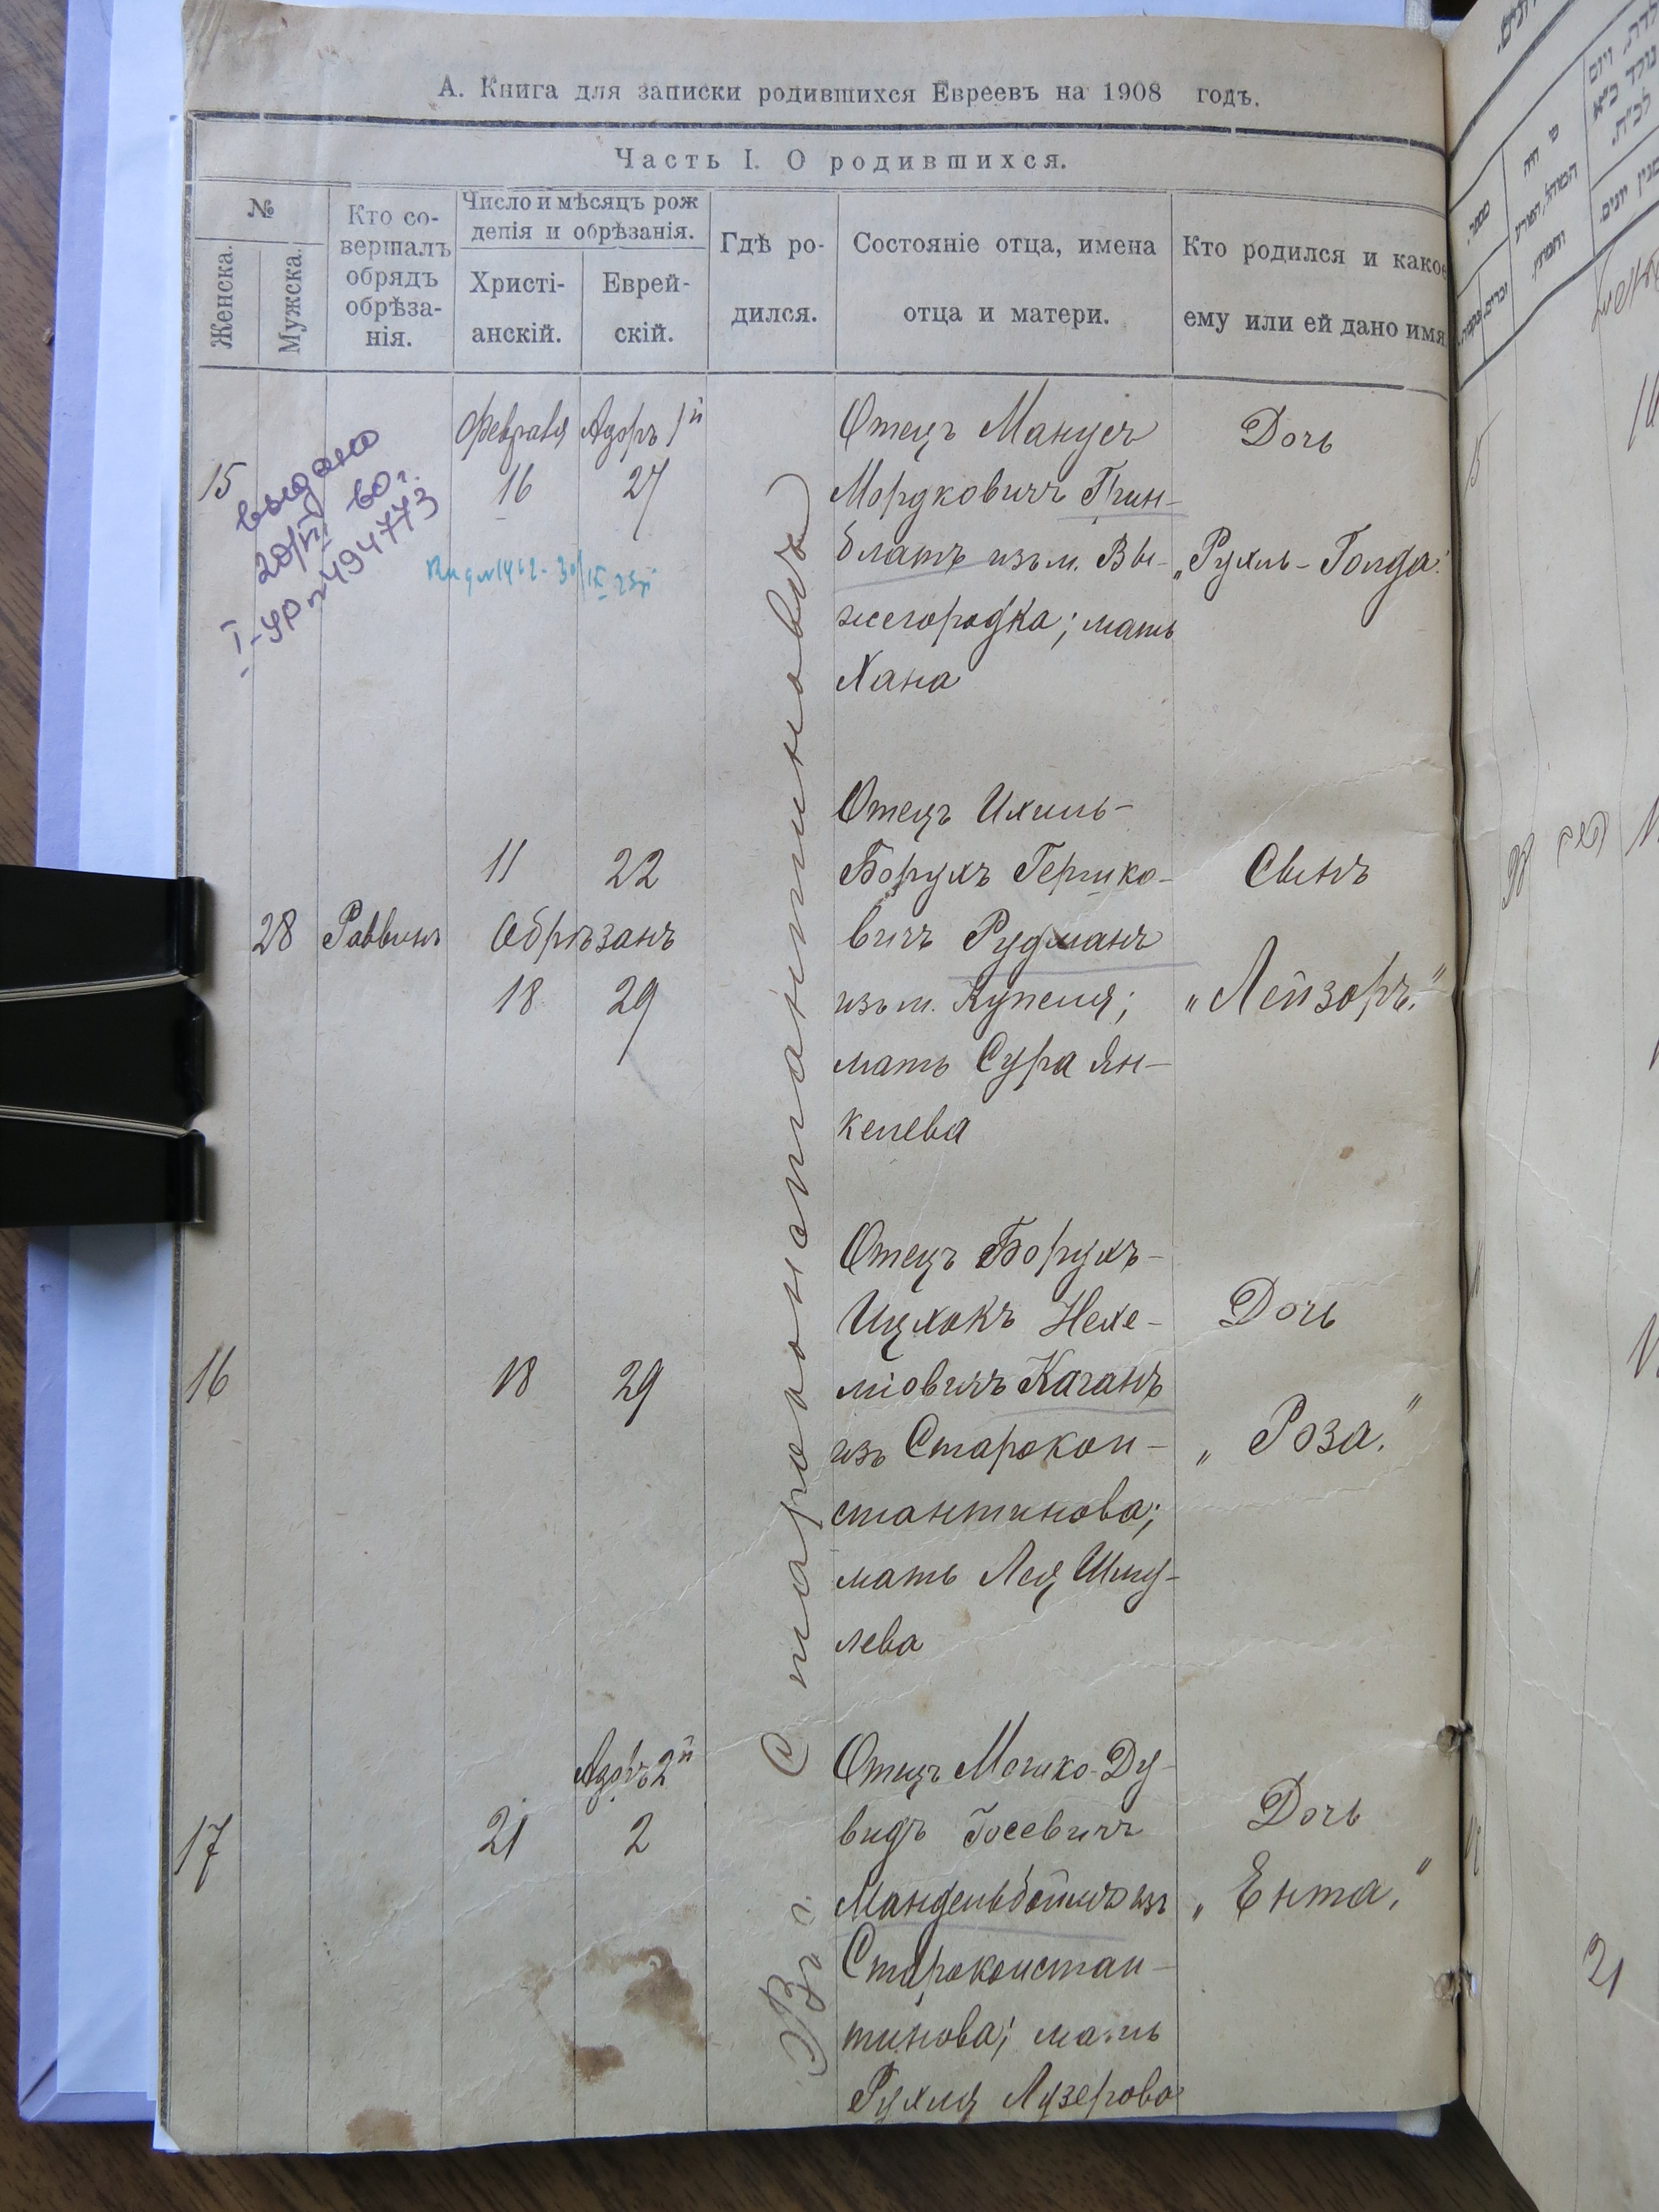 А. Книга для записки родившихся Евреевъ на 1908 годъ.
Часть I. О родившихся.
№
Женска.
Мужска.
Кто со-
вершалъ
обрядъ
обрѣза-
нія.
Число и мѣсяцъ рож
денія и обрѣзанія.
Христі-
анскій.
Еврей-
скій.
Гдѣ ро-
дился.
Состояніе отца, имена
отца и матери.
Кто родился и какое
ему или ей дано имя
Въ г. Староконстантиновѣ
15
выдано
20/VI 60 г.
I-УР № 494773
Февраля Адоръ 1й
16 27
Отецъ Манусъ
Мордковичъ Грин-
блатъ изъ м. Вы-
жегородка; мать
Хана
Дочь
„Рухль-Голда."
28 Раввинъ
11 22
Обрѣзанъ
18 29
Отецъ Ихиль-
Борухъ Гершко-
вичъ Рудманъ
изъ м. Купеля;
мать Сура Ян-
келева
Сынъ
„Лейзоръ."
16
18 29
Отецъ Борухъ-
Ицхокъ Нехе-
міовичъ Каганъ
изъ Старокон-
стантинова;
мать Лея Шму-
лева
Дочь
„Роза."
17
Адоръ 2й
21 2
Отецъ Мошко-Ду-
видъ Іосевичъ
Мандельбоймъ изъ
Староконстан-
тинова; мать
Рухля Лузерова
Дочь
„Ента."
21